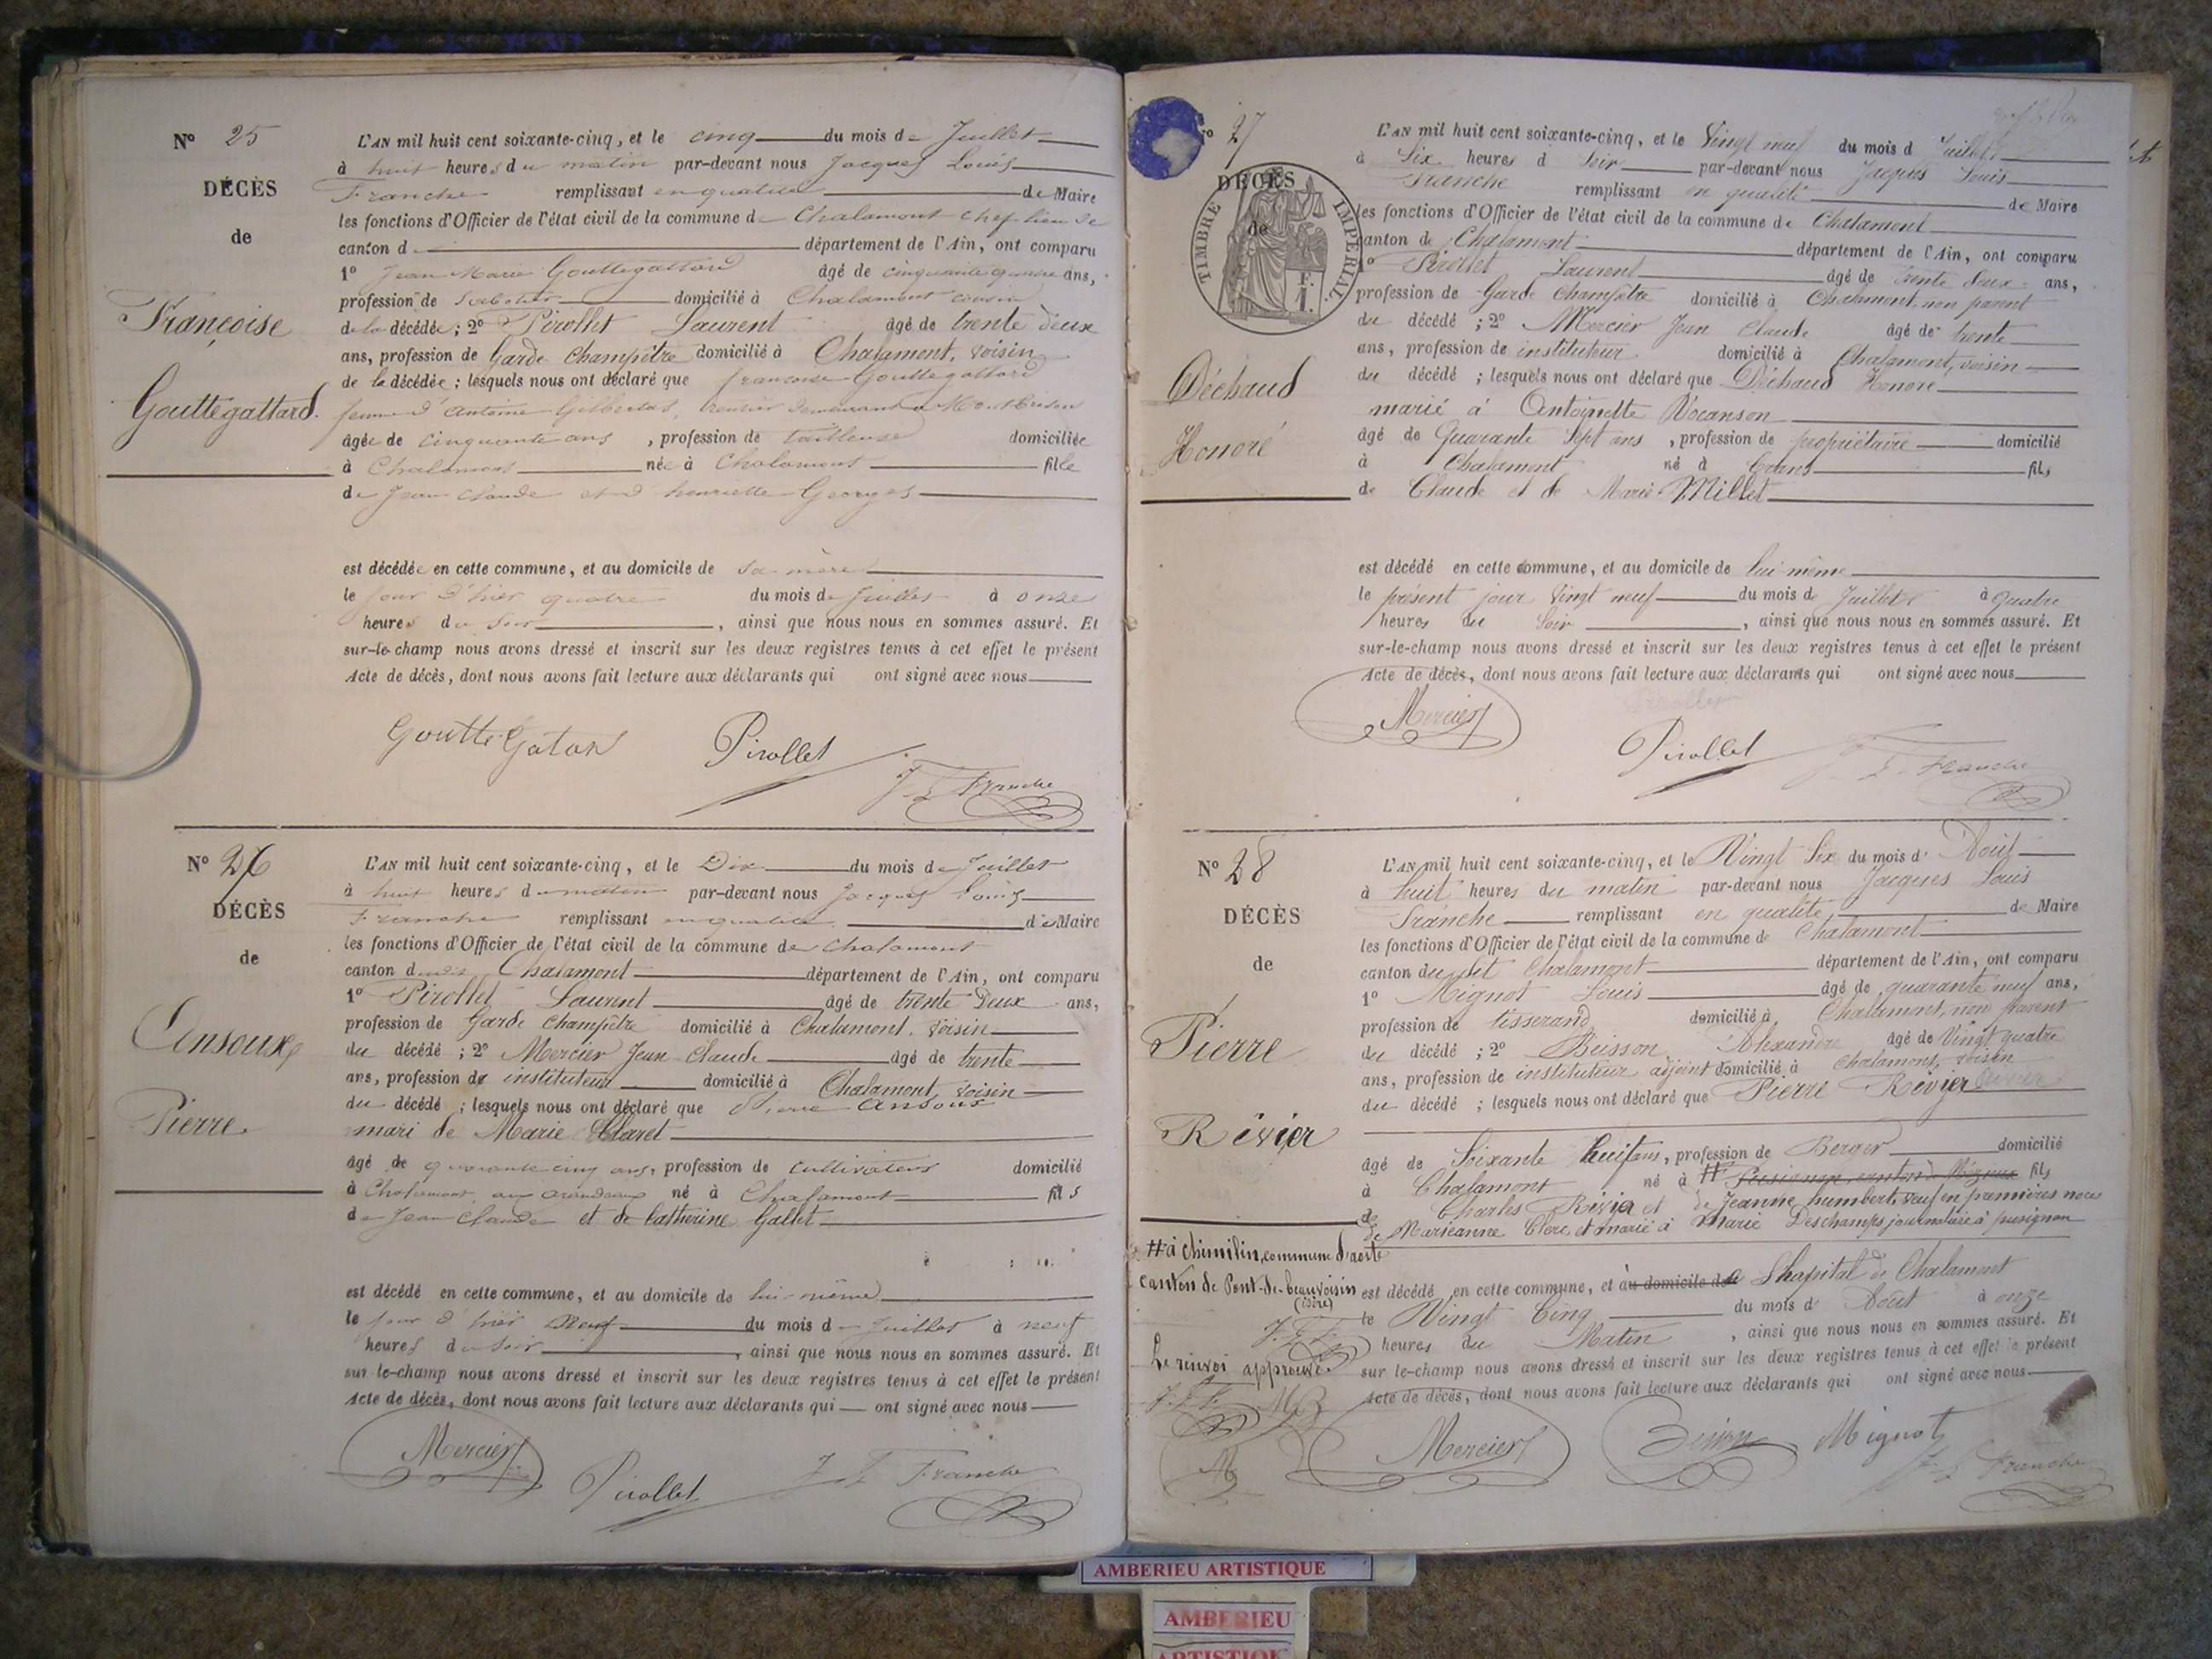 Nº 25
DÉCÈS
de
Françoise
Gouttegattard.
L'AN mil huit cent soixante-cinq, et le cinq du mois de Juillet
à huit heures du matin par-devant nous Jacques Louis
Franche remplissant en qualité de Maire
les fonctions d'Officier de l'état civil de la commune de Chalamont chef-lieu de
canton d département de l'Ain, ont comparu
1º Jean Marie Gouttegattard âgé de cinquante quatre ans,
profession de Sabotier domicilié à Chalamont cousin
de la décédée ; 2º Pirollet Laurent âgé de trente deux
ans, profession de Garde Champêtre domicilié à Chalamont, voisin
de la décédée ; lesquels nous ont déclaré que francoise Gouttegattard
femme d'antoine Gilbertas, rentier demeurant a Montbrison
âgée de cinquante ans , profession de tailleuse domiciliée
à Chalamont née à Chalamont fille
de Jean Claude et d'henriette Georges
est décédée en cette commune, et au domicile de sa mère
le jour d'hier quatre du mois de juillet à onze
heures du soir , ainsi que nous nous en sommes assuré. Et
sur-le-champ nous avons dressé et inscrit sur les deux registres tenus à cet effet le présent
Acte de décès, dont nous avons fait lecture aux déclarants qui ont signé avec nous
Goutte Gatar Pirollet
J L Franche
Nº 26
DÉCÈS
de
Ansoux
Pierre.
L'AN mil huit cent soixante-cinq, et le Dix du mois de Juillet
à huit heures du matin par-devant nous Jacques Louis
Franche remplissant en qualité de Maire
les fonctions d'Officier de l'état civil de la commune de Chalamont
canton de Chalamont département de l'Ain, ont comparu
1º Pirollet Laurent âgé de trente deux ans,
profession de Garde Champêtre domicilié à Chalamont, voisin
du décédé ; 2º Mercier Jean Claude âgé de trente
ans, profession de instituteur domicilié à Chalamont, voisin
du décédé ; lesquels nous ont déclaré que Pierre ansoux
mari de Marie Claret
âgé de quarante cinq ans, profession de cultivateur domicilié
à Chalamont né à Chalamont fils
de Jean Claude et de Catherine Gallet
est décédé en cette commune, et au domicile de lui-même
le jour d'hier neuf du mois de juillet à neuf
heures du soir , ainsi que nous nous en sommes assuré. Et
sur-le-champ nous avons dressé et inscrit sur les deux registres tenus à cet effet le présent
Acte de décès, dont nous avons fait lecture aux déclarants qui ont signé avec nous
Mercier
Pirollet J L Franche
Nº 27
DÉCÈS
de
TIMBRE IMPÉRIAL
Déchaud
Honoré
L'AN mil huit cent soixante-cinq, et le Vingt neuf du mois d Juillet
à Six heures d Soir par-devant nous Jacques Louis
Franche remplissant en qualité de Maire
les fonctions d'Officier de l'état civil de la commune de Chalamont
canton de Chalamont département de l'Ain, ont comparu
1º Pirollet Laurent âgé de trente deux ans,
profession de Garde Champêtre domicilié à Chalamont, non parent
du décédé ; 2º Mercier Jean Claude âgé de trente
ans, profession de instituteur domicilié à Chalamont, voisin
du décédé ; lesquels nous ont déclaré que Déchaud Honoré
marié à Antoinette Vocanson
âgé de Quarante Sept ans , profession de propriétaire domicilié
à Chalamont né à Crans fils
de Claude et de Marie Millet
est décédé en cette commune, et au domicile de lui même
le présent jour Vingt neuf du mois d Juillet à quatre
heures du Soir , ainsi que nous nous en sommes assuré. Et
sur-le-champ nous avons dressé et inscrit sur les deux registres tenus à cet effet le présent
Acte de décès, dont nous avons fait lecture aux déclarants qui ont signé avec nous
Mercier
Pirollet J L Franche
Nº 28
DÉCÈS
de
Pierre
Révier
L'AN mil huit cent soixante-cinq, et le Vingt Six du mois d' Août
à huit heures du matin par-devant nous Jacques Louis
Franche remplissant en qualité de Maire
les fonctions d'Officier de l'état civil de la commune de Chalamont
canton du dit Chalamont département de l'Ain, ont comparu
1º Mignot Louis âgé de quarante neuf ans,
profession de tisserand domicilié à Chalamont, non parent
du décédé ; 2º Buisson Alexandre âgé de Vingt quatre
ans, profession de instituteur adjoint domicilié à Chalamont, voisin
du décédé ; lesquels nous ont déclaré que Pierre Révier
âgé de Soixante huit ans, profession de Berger domicilié
à Chalamont né à # Pusignan canton de fils
de Charles Révier et de Jeanne humbert, veuf en premières noces
de Marieanne Clerc, et marié à Marie Deschamps journalière à pusignan
# à chimilin, commune d'aoste
canton de Pont-de-beauvoisin
(isère)
J. L. F.
Le renvoi approuvé.
J. L. F. M B
M
est décédé en cette commune, et au domicile de l'hopital de Chalamont
le Vingt Cinq du mois d' Août à onze
heures du Matin , ainsi que nous nous en sommes assuré. Et
sur le-champ nous avons dressé et inscrit sur les deux registres tenus à cet effet le présent
Acte de décès, dont nous avons fait lecture aux déclarants qui ont signé avec nous
Mercier Mignot
J L Franche
AMBERIEU ARTISTIQUE
AMBERIEU
ARTISTIQUE